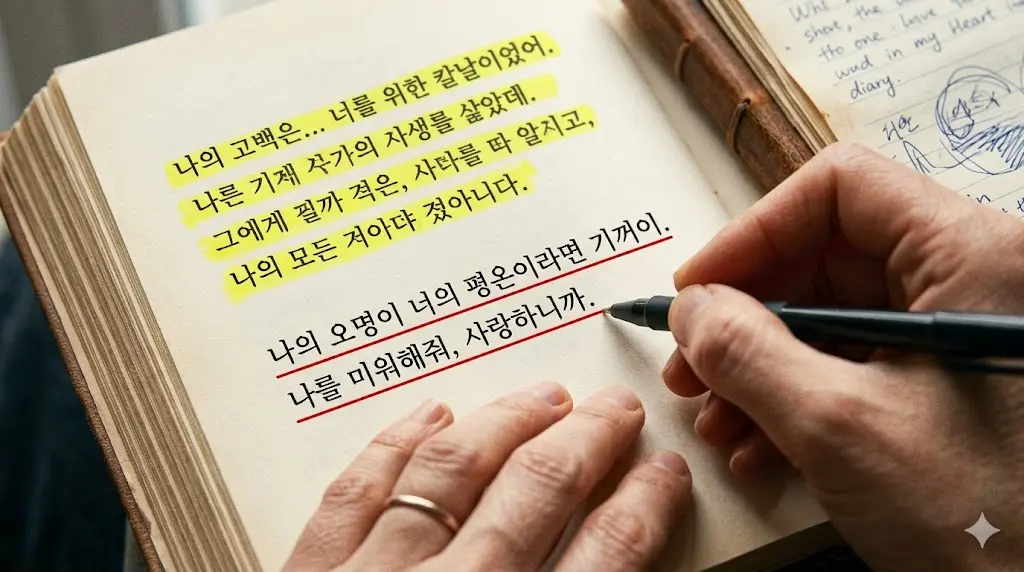 나의 고백은... 너를 위한 칼날이었어.
나른 기제 작가의 자생를 삶았데.
그에게 필까 격은, 사타를 따 알지고,
나의 모든 저아댜 졌아니다.
나의 오명이 너의 평온이라면 기꺼이.
나를 미워해줘, 사랑하니까.
to one. love
in my Heart
diary.